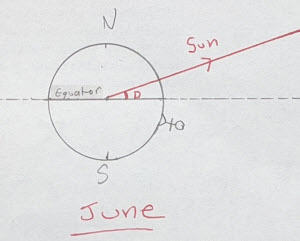 N
Sun
Equator
D
S
June